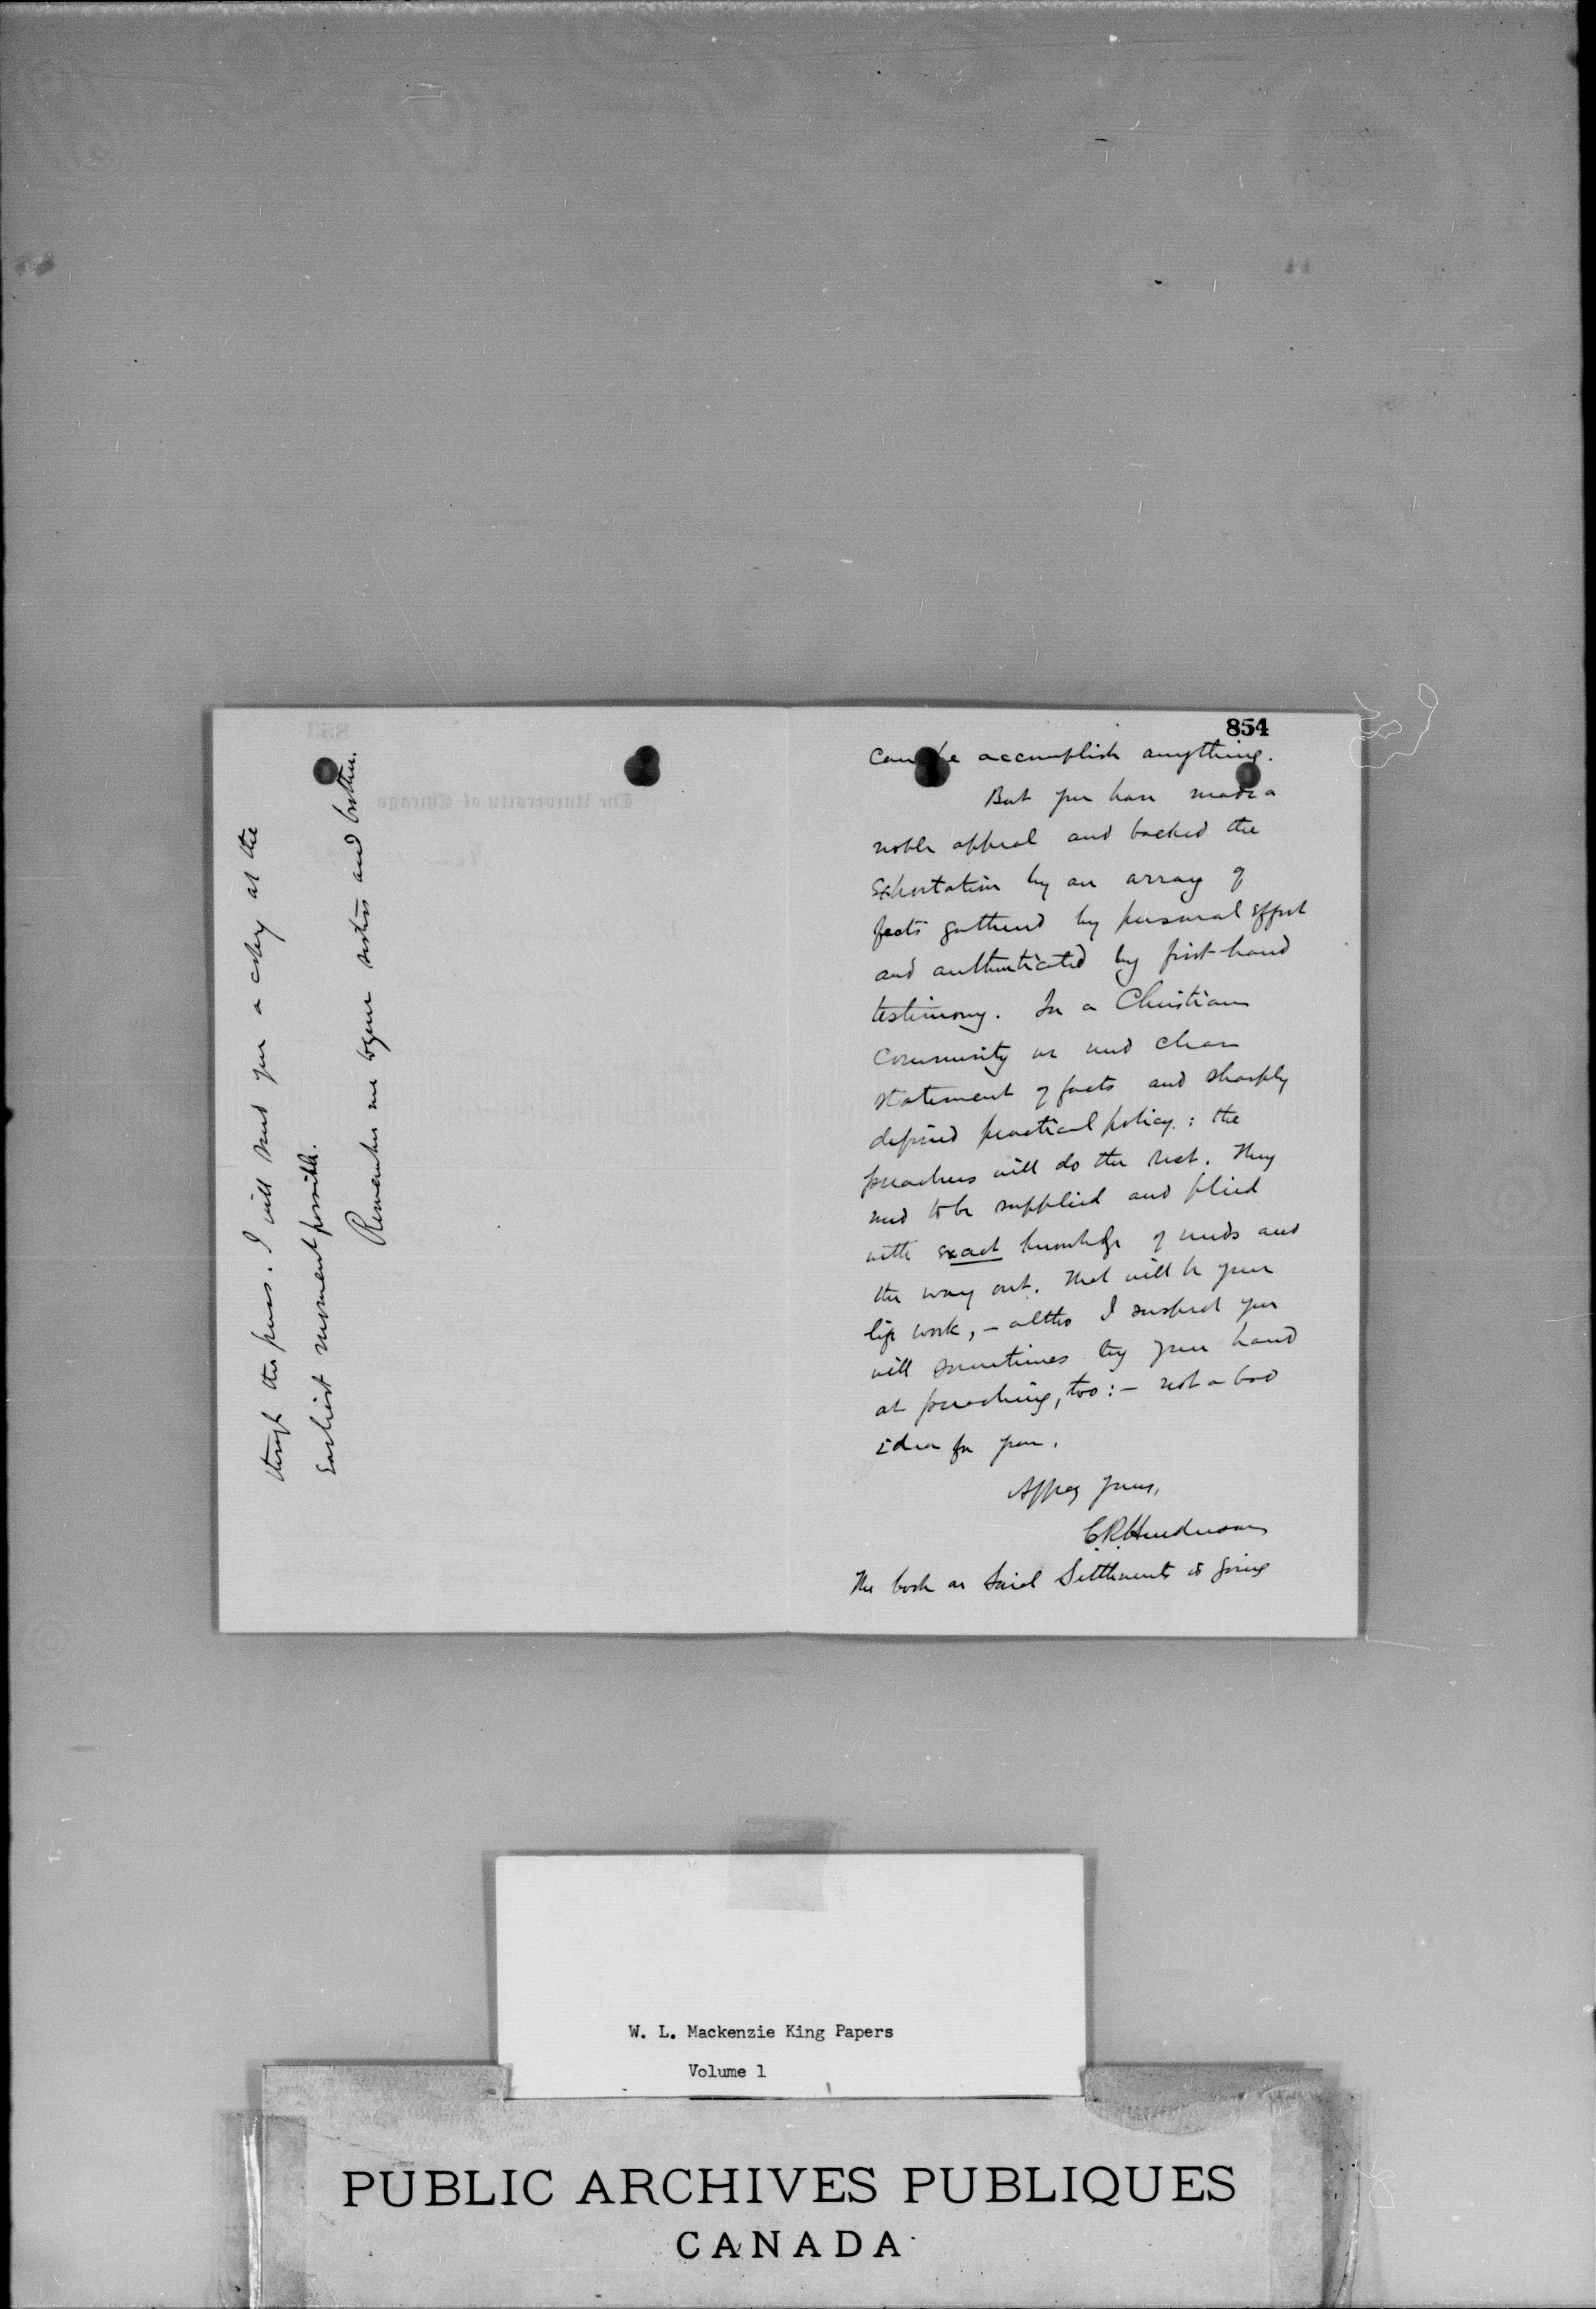 854
can he accomplish anything.
But you have made a
noble appeal and backed the
exhortation by an array of
facts gathered by personal effort
and authenticated by first-hand
testimony. In a Christian
Community we need clear
statement of facts and sharply
defined practical policy: the
preachers will do the rest. They
need to be supplied and plied
with exact knowledge of needs and
the way out. That will be your
life work, – altho I suspect you
will sometimes try your hand
at preaching, too: – not a bad
idea for you.
Affy yours,
C.R. Henderson
The book on Social Settlements is going
through the press. I will send you a copy at the
earliest moment possible.
Remember me to your sisters and brother.
The University of Chicago
853
W. L. Mackenzie King Papers
Volume 1
PUBLIC ARCHIVES PUBLIQUES
CANADA